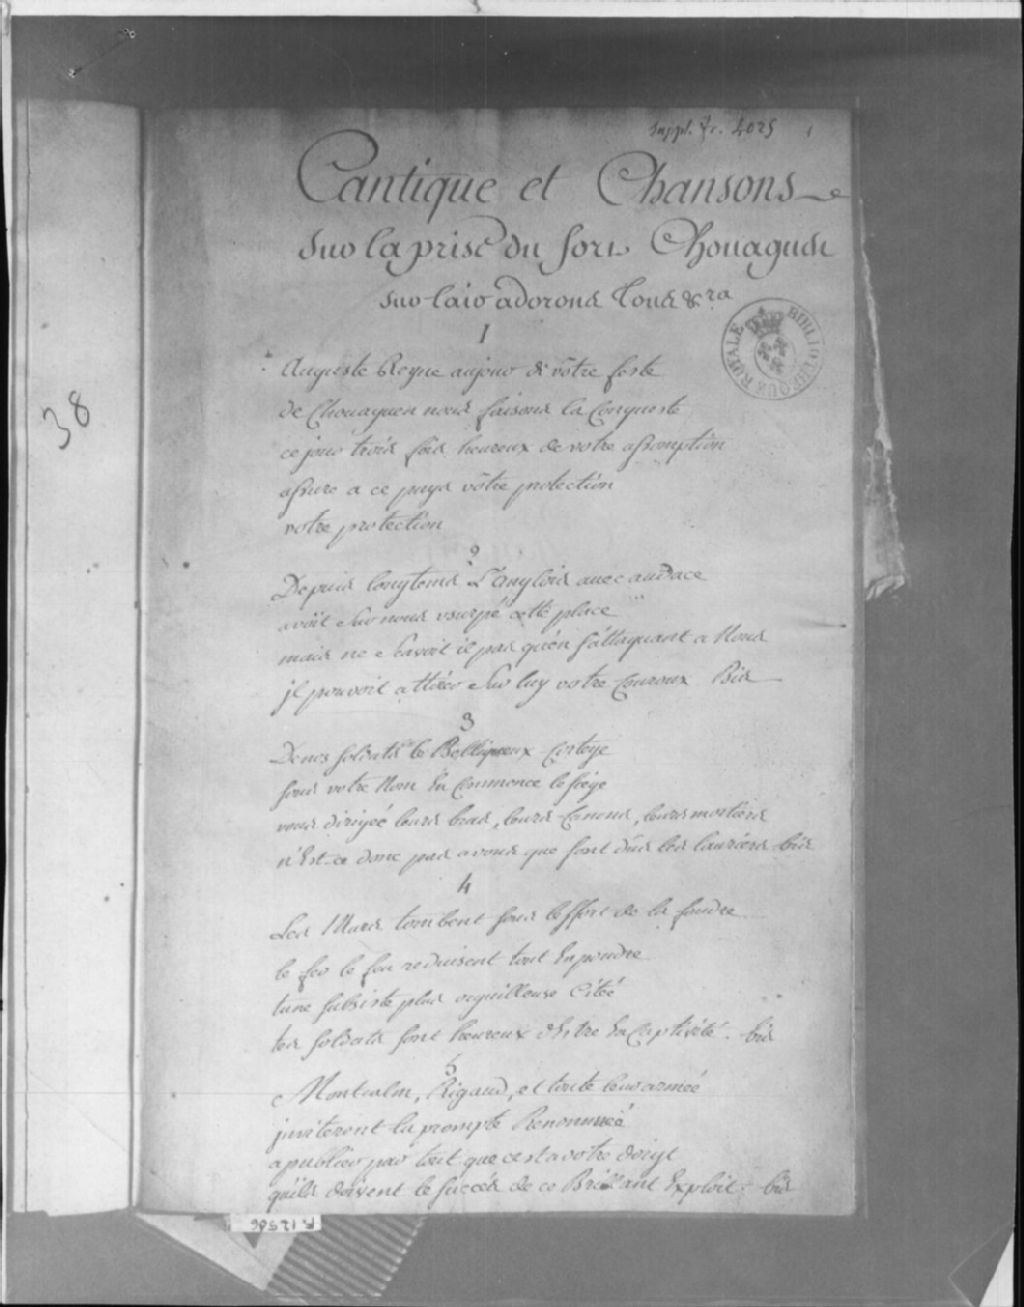 suppl. fr. 4025
1
Cantique et Chansons
sur la prise du fort Chouaguen
sur l'air adorons tous &ra
BIBLIOTHEQUE ROYALE
1
Auguste Reyne aujour de vôtre feste
de Chouaguen nous faisons la Conqueste
ce jour trois fois heureux de votre assomption
assure a ce pays vôtre protection
votre protection
38
2
Depuis longtems L'anglois avec audace
avoit sur nous usurpé cette place
mais ne scavoit il pas qu'en s'attaquant a Nous
jl pouvoit attirer sur luy votre Couroux Bis
3
De nos soldats le Belliqueux Cortege
sous votre Nom En Commence le siege
vous dirigée leurs bras, leurs Canons, leurs mortiers
n'Est-ce donc pas a vous que sont dûs les lauriers bis
4
Les Murs tombent sous l'effort de la foudre
le fer le feu reduisent tout En poudre
tu ne subsiste plus orguilleuse Citéé
tes soldats sont heureux d'Estre En Captivité. bis
5
Montcalm, Rigaud, et toute leur armeé
jnviteront la prompte Renommeé
a publier par tout que c'est a votre doigt
qu'ils doivent le succés de ce Brillant Exploit. bis
R 12506